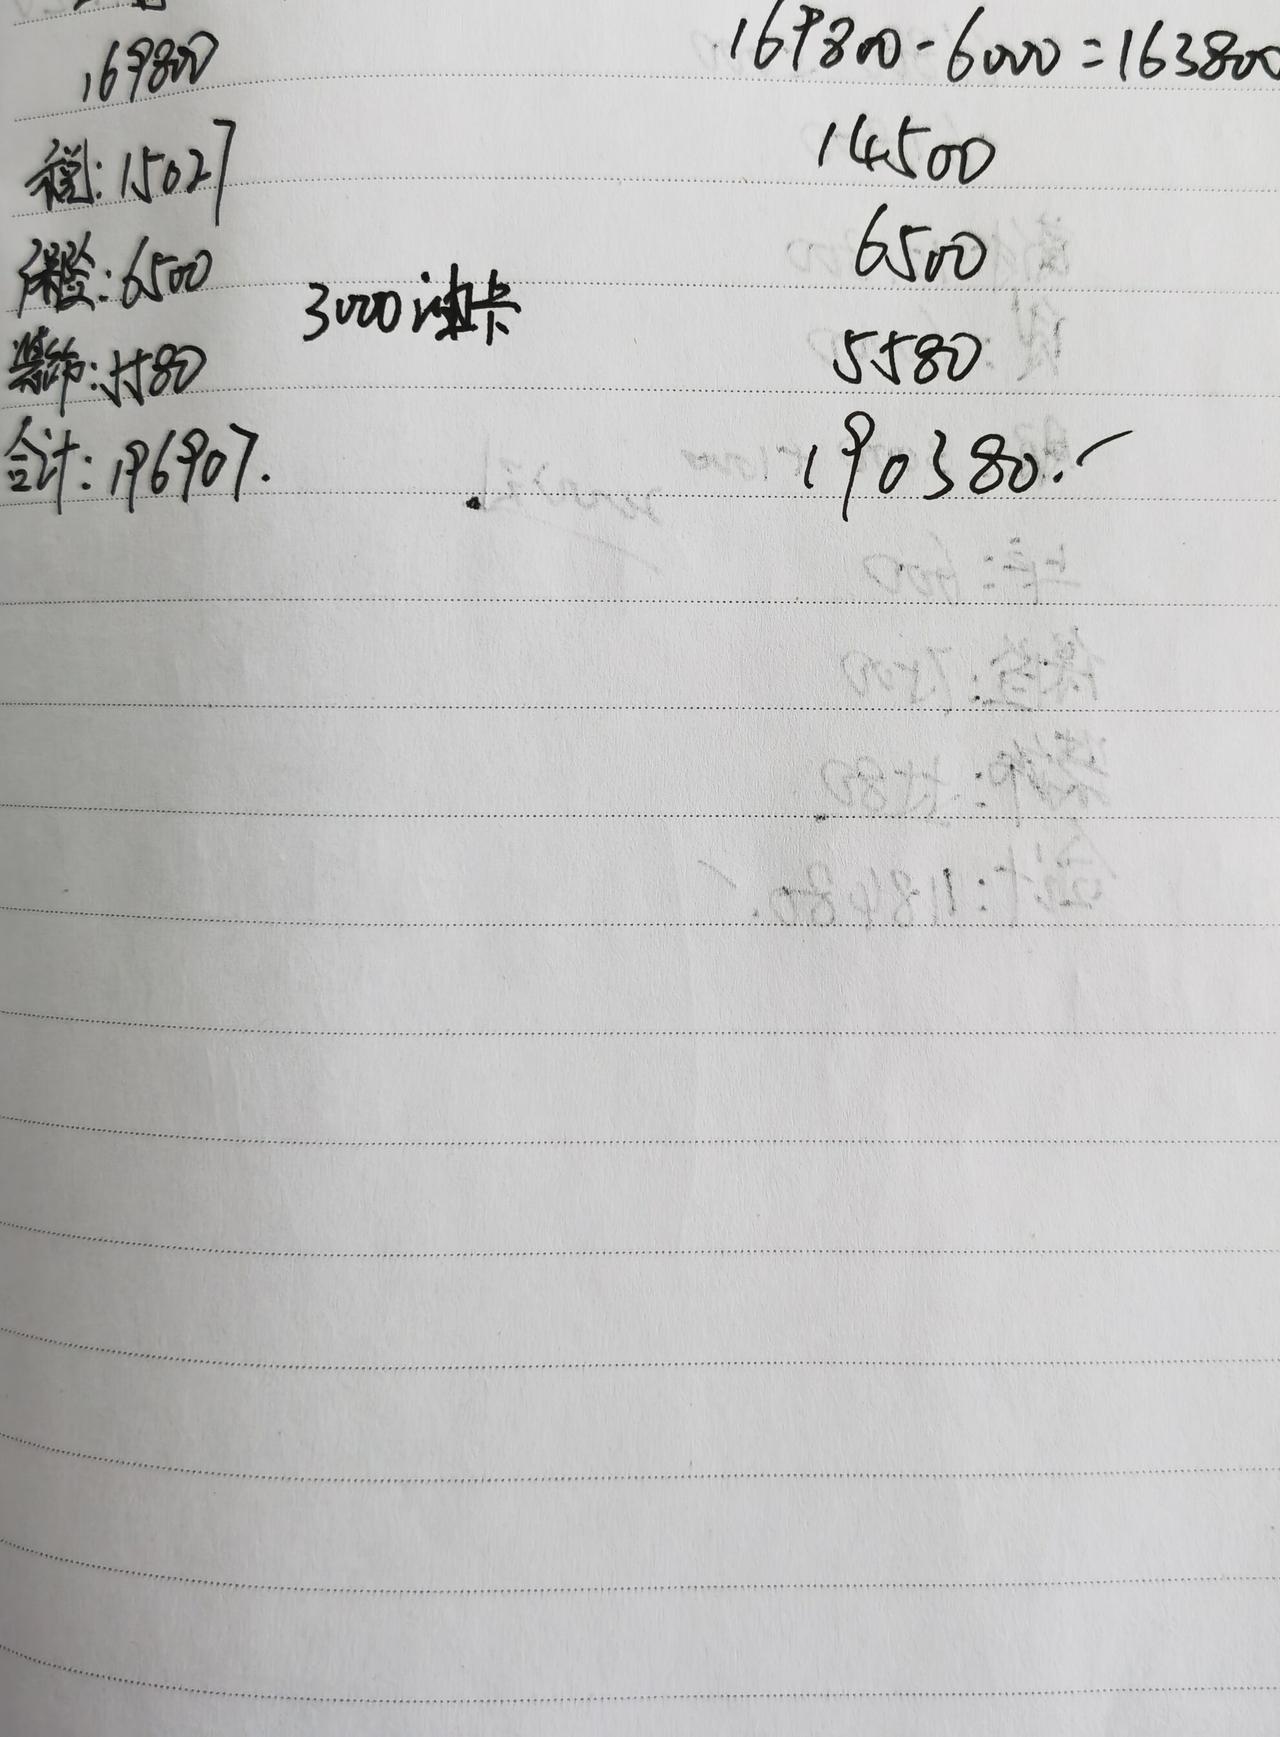 169800
税:15027
保险:6500
3000油卡
装饰:5580
合计:196907.
169800-6000=163800
14500
6500
5580
190380.